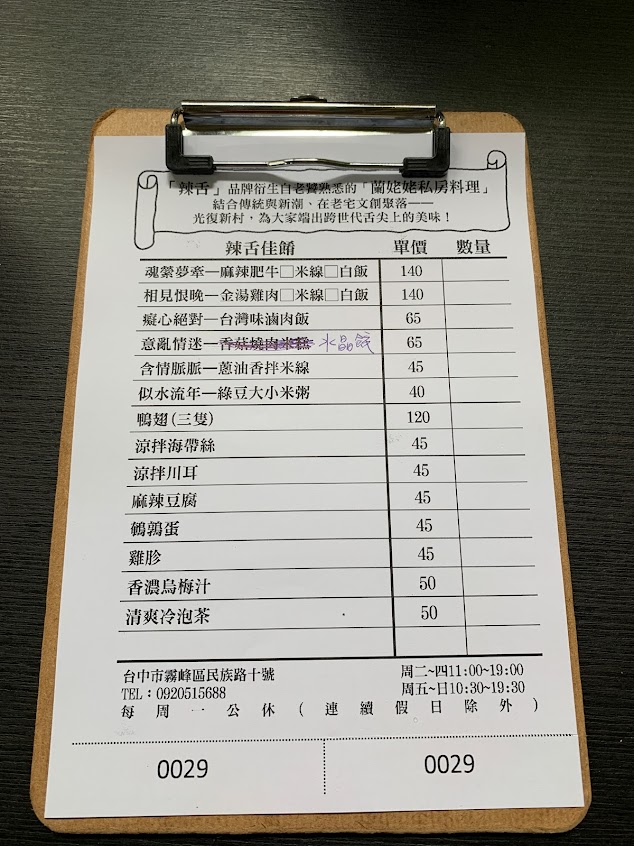 「辣舌」品牌衍生自老饕熟悉的「蘭姥姥私房料理」
結合傳統與新潮、在老宅文創聚落——
光復新村，為大家端出跨世代舌尖上的美味！
辣舌佳餚 單價 數量
魂縈夢牽—麻辣肥牛□米線□白飯 140
相見恨晚—金湯雞肉□米線□白飯 140
癡心絕對—台灣味滷肉飯 65
意亂情迷—香菇燒肉米糕 水晶餃 65
含情脈脈—蔥油香拌米線 45
似水流年—綠豆大小米粥 40
鴨翅(三隻) 120
涼拌海帶絲 45
涼拌川耳 45
麻辣豆腐 45
鵪鶉蛋 45
雞胗 45
香濃烏梅汁 50
清爽冷泡茶 50
台中市霧峰區民族路十號 周二~四11:00~19:00
TEL：0920515688 周五~日10:30~19:30
每周一公休(連續假日除外)
0029 0029